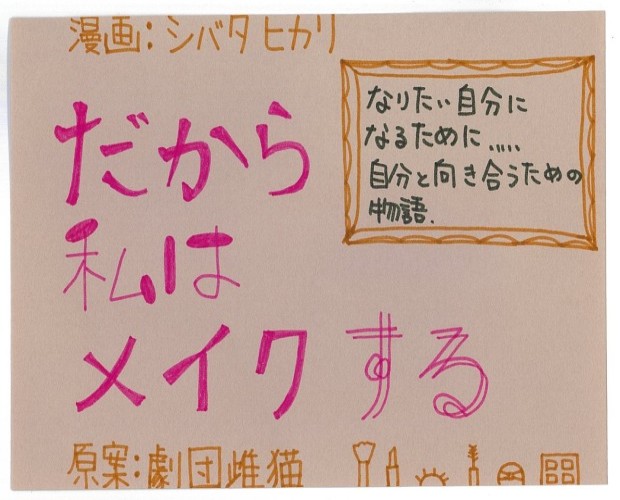 漫画:シバタヒカリ
だから
私は
メイクする
なりたい自分に
なるために.....
自分と向き合うための
物語.
原案:劇団雌猫